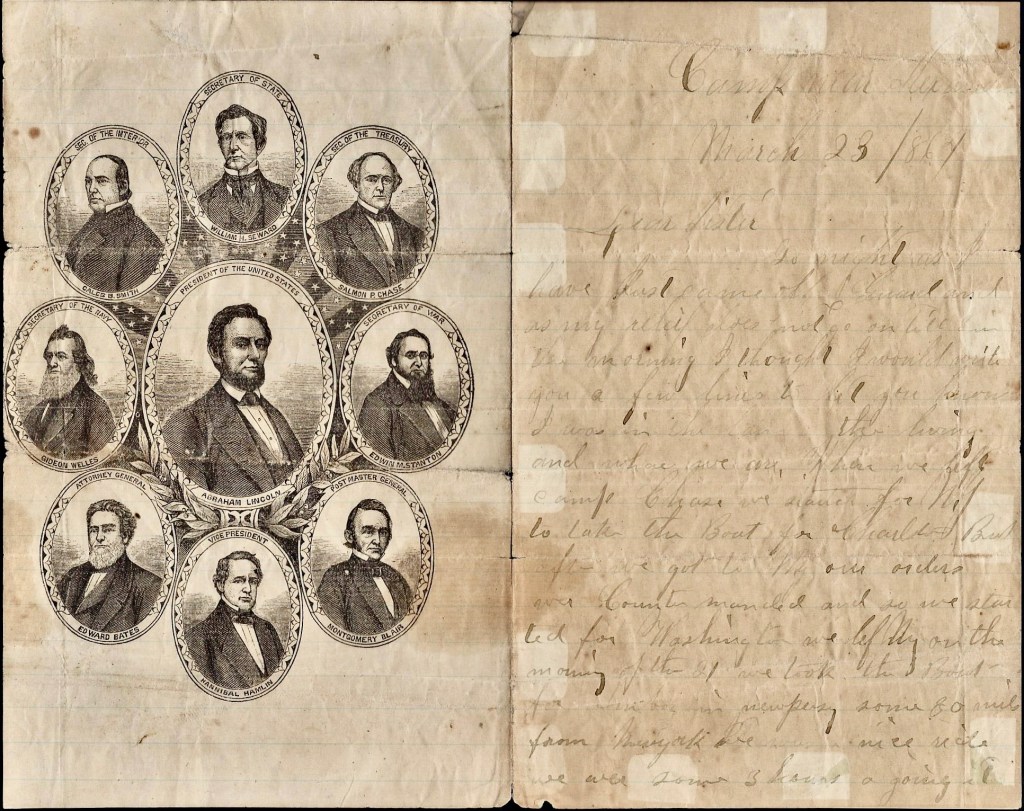 SECRETARY OF STATE
WILLIAM H. SEWARD
SEC. OF THE INTERIOR
CALEB B. SMITH
SEC. OF THE TREASURY
SALMON P. CHASE
PRESIDENT OF THE UNITED STATES
ABRAHAM LINCOLN
SECRETARY OF THE NAVY
GIDEON WELLES
SECRETARY OF WAR
EDWIN M. STANTON
ATTORNEY GENERAL
EDWARD BATES
POST MASTER GENERAL
MONTGOMERY BLAIR
VICE PRESIDENT
HANNIBAL HAMLIN
Camp near
March 23 /864
Dear Sister
to night as I
have just Guard and
as my relief does not go on till in
the morning I thought I would write
you a few lines to let you know
I was in the the living
and where we are When we left
camp Chase we started for NY
to take the Boat for But
we got to NY our orders
wer Counter manded and so we star
ted for Washington we left NY on the
morning of the we took the Boat
for in some 30 mile
from we nice ride
we are some 3 hours a going it